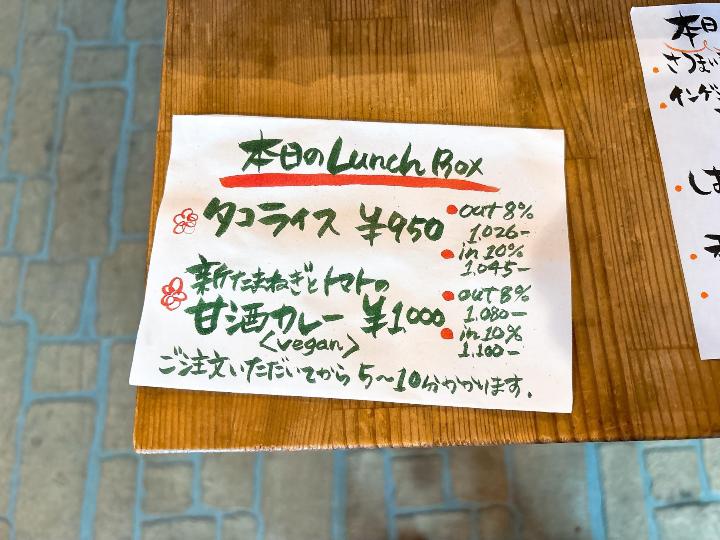 本日のLunch Box
タコライス ¥950
out 8%
1,026-
in 10%
1,045-
新たまねぎとトマトの
甘酒カレー ¥1000
<vegan>
out 8%
1,080-
in 10%
1,100-
ご注文いただいてから5〜10分かかります。
本日
さつまい
インゲン
は